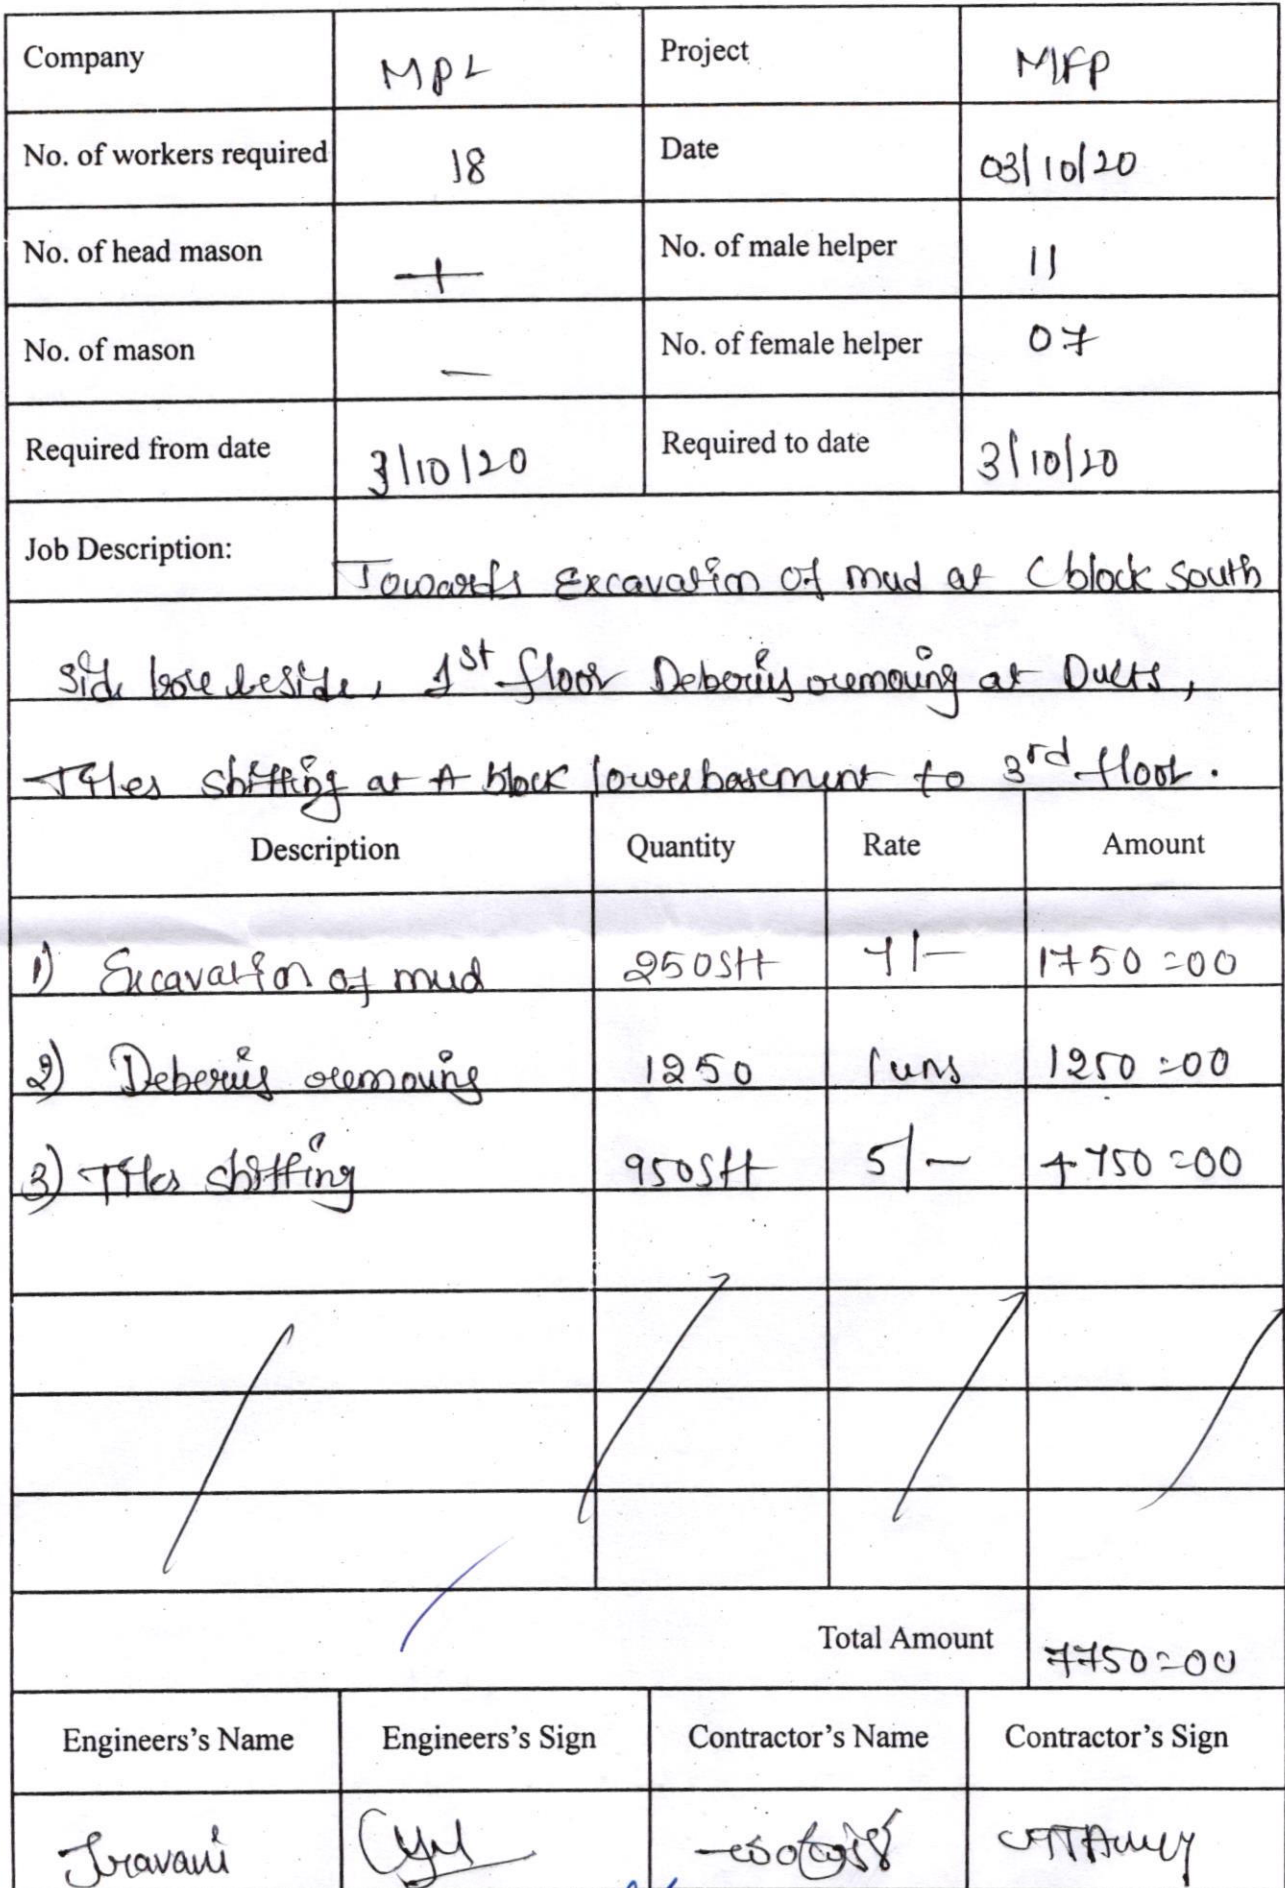 Company MPL Project MFP
No. of workers required 18 Date 03/10/20
No. of head mason — No. of male helper 11
No. of mason — No. of female helper 07
Required from date 3/10/20 Required to date 3/10/20
Job Description: Towards Excavation of mud at C block South
side bore beside, 1st floor Deberis removing at Ducts,
Tiles shifting at A block lower basement to 3rd floor.
Description Quantity Rate Amount
1) Excavation of mud 250Sft 7/- 1750=00
2) Deberis removing 1250 1250=00
3) Tiles shifting 950Sft 5/- 4750=00
Total Amount 7750=00
Engineers's Name Engineers's Sign Contractor's Name Contractor's Sign
Sravani